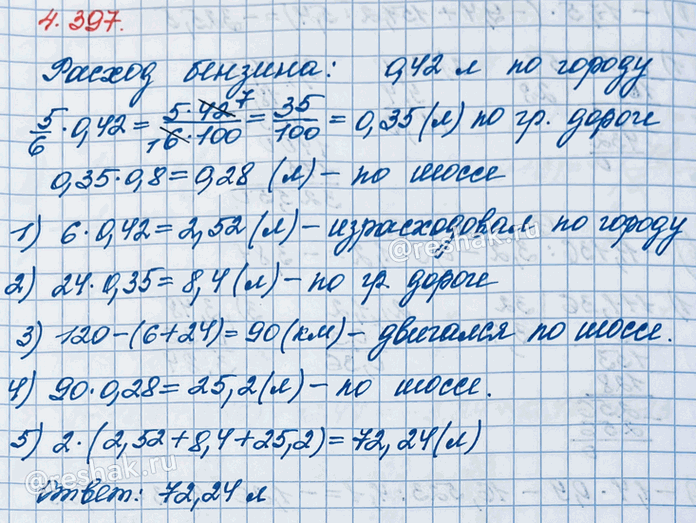 4.397.
Расход бензина: 0,42 л по городу
5/6 · 0,42 = 5·42 7/1 6·100 = 35/100 = 0,35 (л) по гр. дороге
0,35·0,8 = 0,28 (л) – по шоссе
1) 6·0,42 = 2,52 (л) – израсходовал по городу
@reshak.ru
2) 24·0,35 = 8,4 (л) – по гр. дороге
3) 120 – (6+24) = 90 (км) – двигался по шоссе.
4) 90·0,28 = 25,2 (л) – по шоссе.
5) 2·(2,52+8,4+25,2) = 72,24 (л)
@reshak.ru
Ответ: 72,24 л